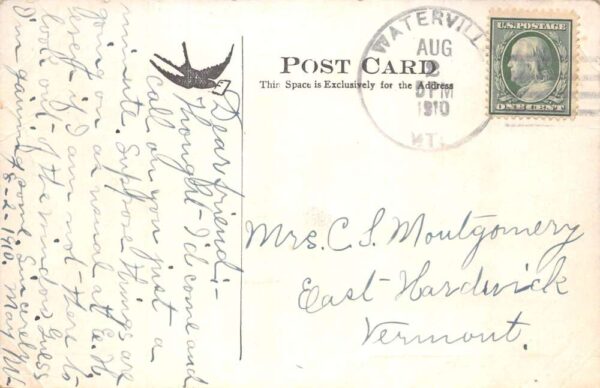 POST CARD
This Space is Exclusively for the Address
WATERVILL
AUG
2
5 PM
1910
VT.
U.S. POSTAGE
ONE CENT
Mrs. C. S. Montgomery
East Hardwick
Vermont.
Dear friend:-
Thought I'd come and
call on you just a
minute. Suppose things are
going on as usual at E. H.
even if I am not there to
look out of the windows. Guess
I'm gaining some. Sincerely
8-2-1910. May M.